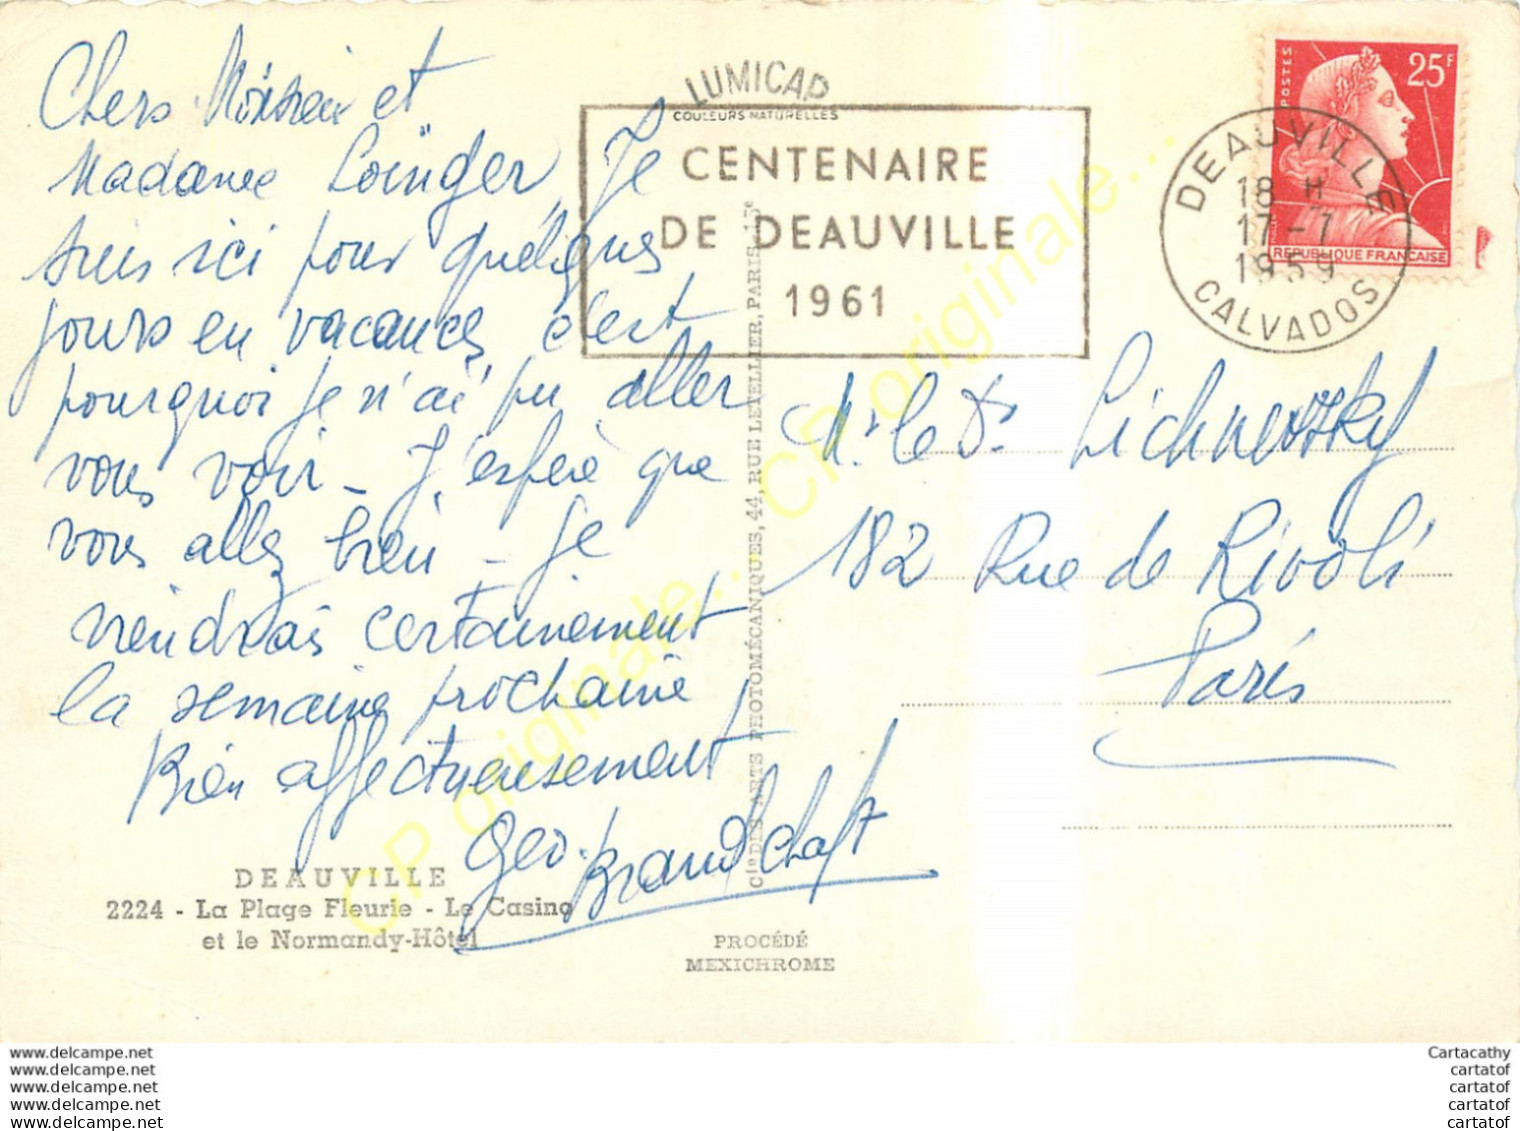 Chers Monsieur et
Madame Loinger, Je
suis ici pour quelques
jours en vacances, c'est
pourquoi je n'ai pu aller
vous voir - J'espère que
vous allez bien - Je
viendrais certainement
la semaine prochaine
Bien affectueusement
Geo. Brandschaft
DEAUVILLE
2224 - La Plage Fleurie - Le Casino
et le Normandy-Hôtel
LUMICAP
COULEURS NATURELLES
CENTENAIRE
DE DEAUVILLE
1961
Cie DES ARTS PHOTOMÉCANIQUES, 44, RUE LETELLIER, PARIS-15e
PROCÉDÉ
MEXICHROME
POSTES
25F
REPUBLIQUE FRANCAISE
DEAUVILLE
18 H
17-7
1959
CALVADOS
M. le Dr. Lichnewsky
182 Rue de Rivoli
Paris
CP originale... CP originale... CP originale...
www.delcampe.net
www.delcampe.net
www.delcampe.net
www.delcampe.net
www.delcampe.net
Cartacathy
cartatof
cartatof
cartatof
cartatof